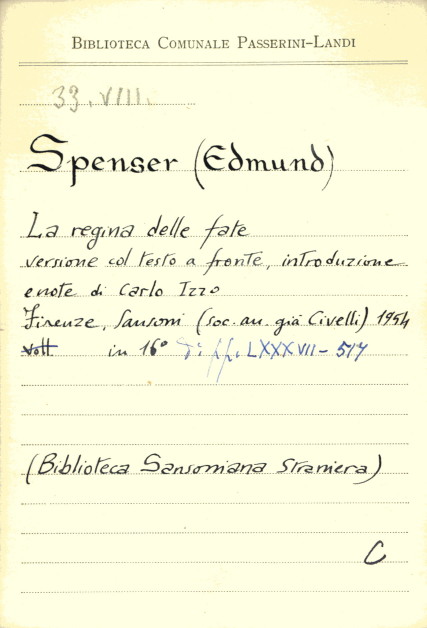 BIBLIOTECA COMUNALE PASSERINI-LANDI
33. VIII.
Spenser (Edmund)
La regina delle fate
versione col testo a fronte, introduzione
e note di Carlo Izzo
Firenze, Sansoni (soc. an. già Civelli) 1954
voll. in 16° di pp. LXXXVII - 517
(Biblioteca Sansoniana Straniera)
C